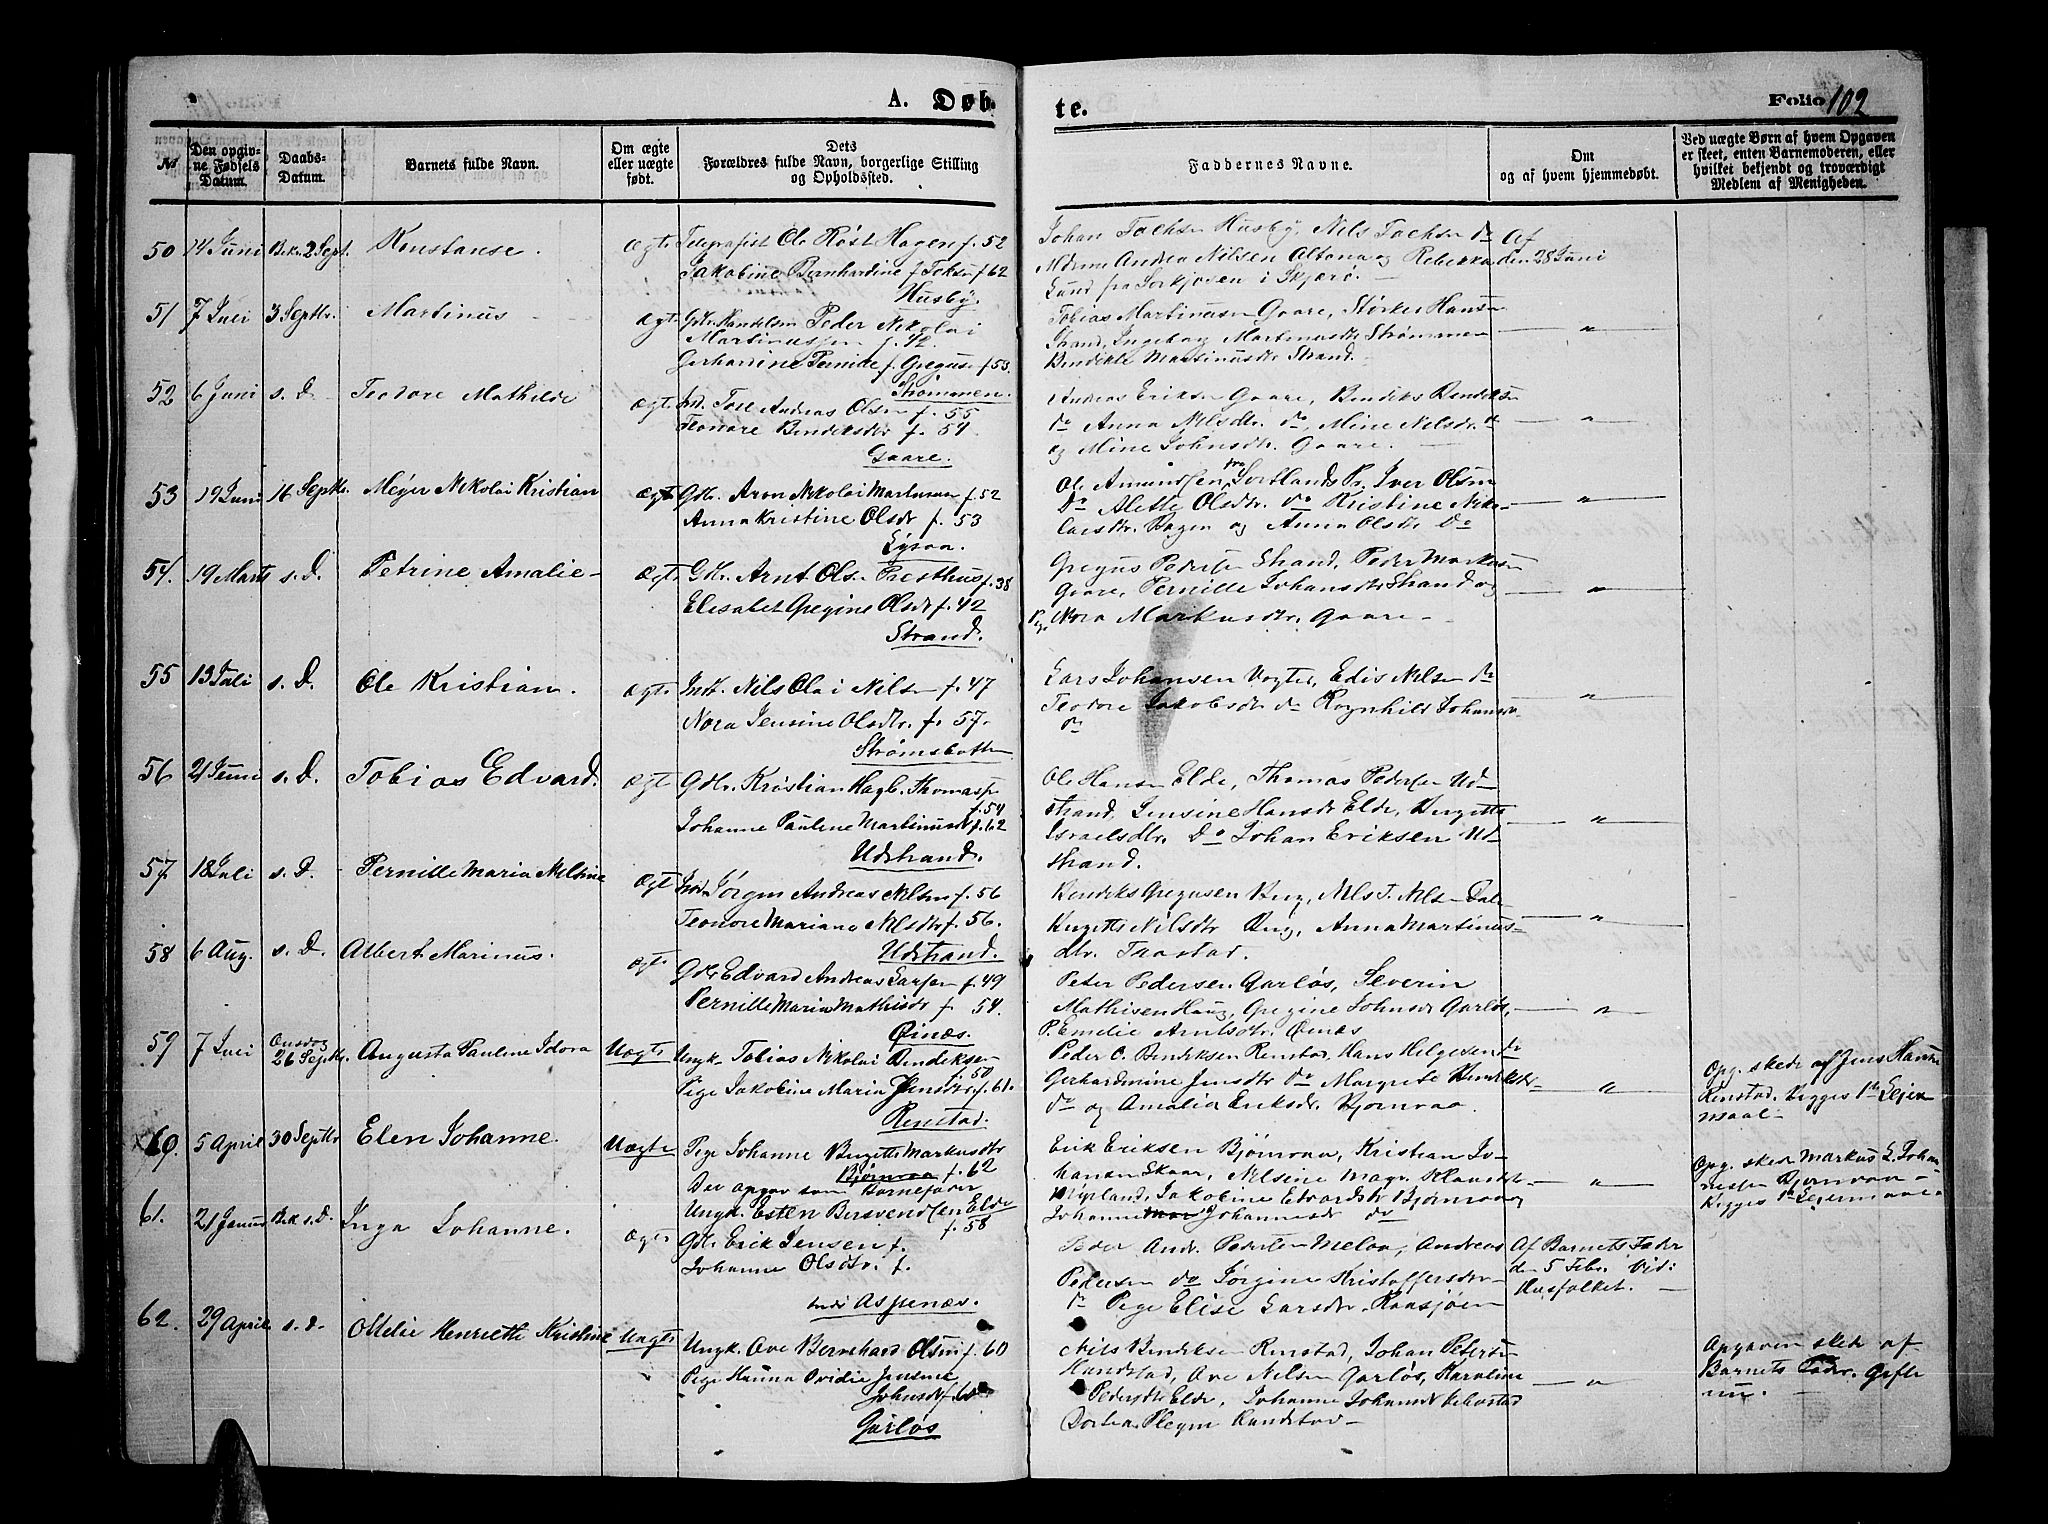 A. Døb-
te.
Folio 102
№
Den opgiv-
ne Fødsels
Datum.
Daabs-
Datum.
Barnets fulde Navn.
Om ægte
eller uægte
født.
Dets
Forældres fulde Navn, borgerlige Stilling
og Opholdssted.
Faddernes Navne.
Om
og af hvem hjemmedøbt.
Ved uægte Børn af hvem Opgaven
er skeet, enten Barnemoderen, eller
hvilket bekjendt og troværdigt
Medlem af Menigheden.
50 14 Juni Bek. 2 Sept. Konstanse. Ægte
Telegrafist Ole Røst Hagen f. 52
Jakobine Bernhardine f. 62
Husby.
Johan Husby, Nils do
Andrea Nilsen Altona og Rebekka
Lund fra i Skjærø.
Af
den 28 Juni
51 7 Juli 3 Septbr. Martinus Ægte
Peder Nikolai
Martinussen f. 42.
Gerhardine Pernille f. 53.
Strømmen.
Tobias Martinussen Gaare, Størker Hansen
Strand, Ingeborg Martinusdtr Strømmen
Martinusdtr Strand.
— " —
52 6 Juni s. D. Teodore Mathilde Ægte
Ind. Tore Andreas Olsen f. 55
Teonore Bendiksdtr f. 54.
Gaare.
Andreas Eriksen Gaare, Bendiks Bendiksen
do Anna Nilsdtr. do, Mine Nilsdr. do
og Mine Johnsdtr. Gaare.
— " —
53 19 Juni 16 Septbr. Meyer Nikolai Kristian Ægte
Gdbr. Aron Nikolai Martinusen f. 52
Anna Kristine Olsdr f. 53
Ole Amundsen fra Sortlands Pr. Iver Olsen
do Alette Olsdtr. do Kristine Niko-
laisdtr. Bogen og Anna Olsdtr do
— " —
54. 19 Marts s. D. Petrine Amalie Ægte
Gdbr. Arnt Olsen Presthus f. 38
Elisabet Gregine Olsdtr f. 42
Strand.
Gregus Pedersen Strand, Peder Markusen
Gaare, Pernille Johansdtr Strand og
Pige Nora Markusdtr. Gaare
— " —
55 13 Juli s. D. Ole Kristian. Ægte
Nils Olai Nilsen f. 47
Nora Jensine Olsdtr. f. 57.
Strømsbotten
Lars Johansen Vogter, Edis Nilsen do
Teodore Jakobsdtr do Ragnhild Johansdtr
do
— " —
56 21 Juni s. D. Tobias Edvard. Ægte
Gdbr. Kristian Hagb. Thomassen
f. 54
Johanne Pauline Martinusdtr f. 62
Udstrand.
Ole Hansen Elde, Thomas Pedersen Ud-
strand, Jensine Hansdtr Elde, Birgitte
Israelsdtr. do Johan Eriksen Ud-
strand.
— " —
57. 18 Juli s. D. Pernille Maria Nilsine Ægte
Jørgen Andreas Nilsen f. 56
Teonore Mariana Nilsdtr f. 56.
Udstrand.
Bendiks Gregusen Berg, Nils T. Nilsen Dale
Birgitte Nilsdtr Berg, Anna Martinus-
dtr. Trastad.
— " —
58 6 Aug. s. D. Albert Marinus. Ægte
Gdbr Edvard Andreas Larsen f. 49
Pernille Maria Mathisdtr f. 54.
Øinæs.
Peter Pedersen Garløs, Severin
Mathisen Haug, Gregine Johnsdr Garløs,
P. Emelie Arntsdtr. Øinæs
— " —
59 7 Juli Onsdag
26 Septbr. Augusta Pauline Idora Uægte
Ungk. Tobias Nikolai Bendiksen
f. 50
Pige Jakobine Maria Jensdtr. f. 61.
Renstad.
Peder O. Bendiksen Renstad, Hans Helgesen do
Gerhardmine Jensdtr do Margrete Bendiksdtr
do og Amalia Eriksdr. Bjørnraa.
— " —
Opg. skede af Jens Hansen
Renstad. Begges 1ste Leier-
maal
60. 5 April 30 Septbr Elen Johanne. Uægte
Pige Johanne Birgitte Markusdtr
Bjørnraa f. 62
Der opgav som Barnefader
Ungk. Esten Bersvendsen Elde
f. 58
Erik Eriksen Bjørnraa, Kristian Jo-
hansen Skaar, Nilsine Magr.
Jakobine Edvardsdtr Bjørnraa og
Johanne Johannesdr do
— " —
Opg. skede Markus L. Johan-
nesen Bjørnraa
Begges 1. Leiermaal
61. 21 Januar Bek. s. D. Inga Johanne. Ægte
Gdbr. Erik Jensen f.
Johanne Olsdtr. f.
Aspenæs.
Peder Andr. Pedersen Meløa, Andreas
Pedersen do Jørgine Kristoffersdtr
do Pige Elise Larsdtr.
Af Barnets Fader
den 5 Febr. Vid:
Husfolket.
62. 29 April s. d. Ottelie Henriette Kristine Uægte
Ungk. Ove Bernhard Olsen f. 60
Pige Hanna Ovidie Jensine
Johnsdtr f. 60
Garløs
Nils Bendiksen Renstad, Johan Petersen
Ove Nilsen Garløs, Karoline
Pedersdtr Elde, Johanne Johansdtr
Dortea
— " —
Opgaven skede af
Barnets Fader. Gifte
nu.